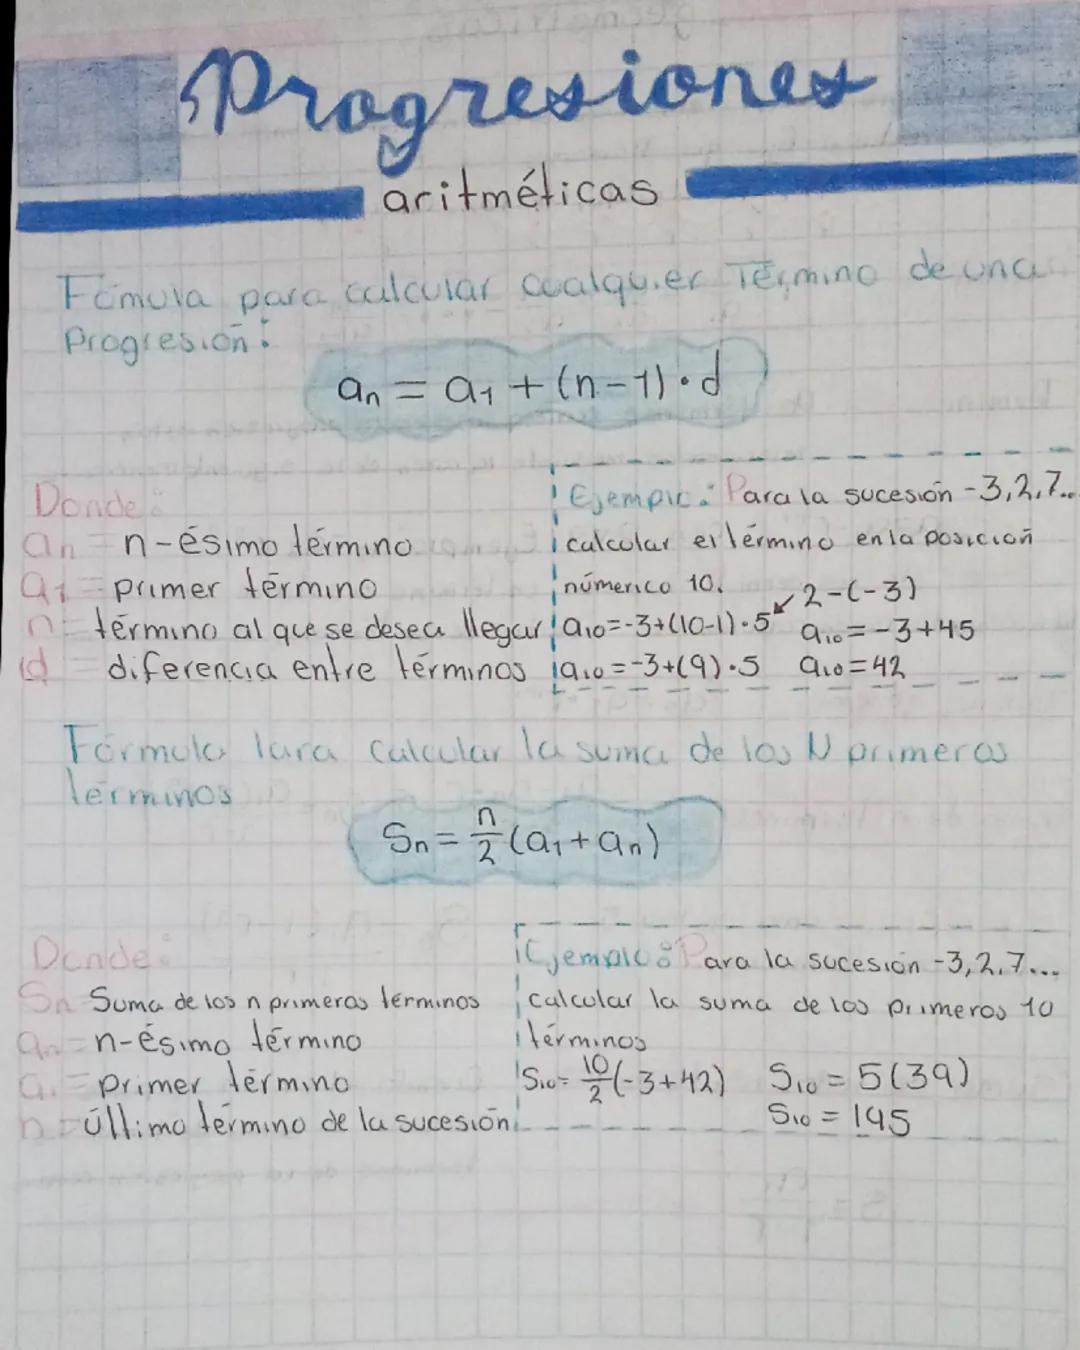 Progresiones
aritméticas
Fórmula para calcular cualquier Término de una
Progresión:
an = a1 + (n-1) · d
Donde:
an = n-ésimo término
a1 = primer término
n = término al que se desea llegar
d = diferencia entre términos
Ejemplo: Para la sucesión -3,2,7..
calcular el término en la posición
númerico 10.
2-(-3)
a10=-3+(10-1)·5
a10=-3+45
a10=-3+(9)·5
a10=42
Fórmula lara calcular la suma de los N primeros
términos
Sn = n/2 (a1 + an)
Donde:
Sn Suma de los n primeros términos
an = n-ésimo término
a1 = primer término
n = último término de la sucesión
Ejemplo: Para la sucesión -3,2,7...
calcular la suma de los primeros 10
términos
S10= 10/2 (-3+42)
S10 = 5(39)
S10 = 195